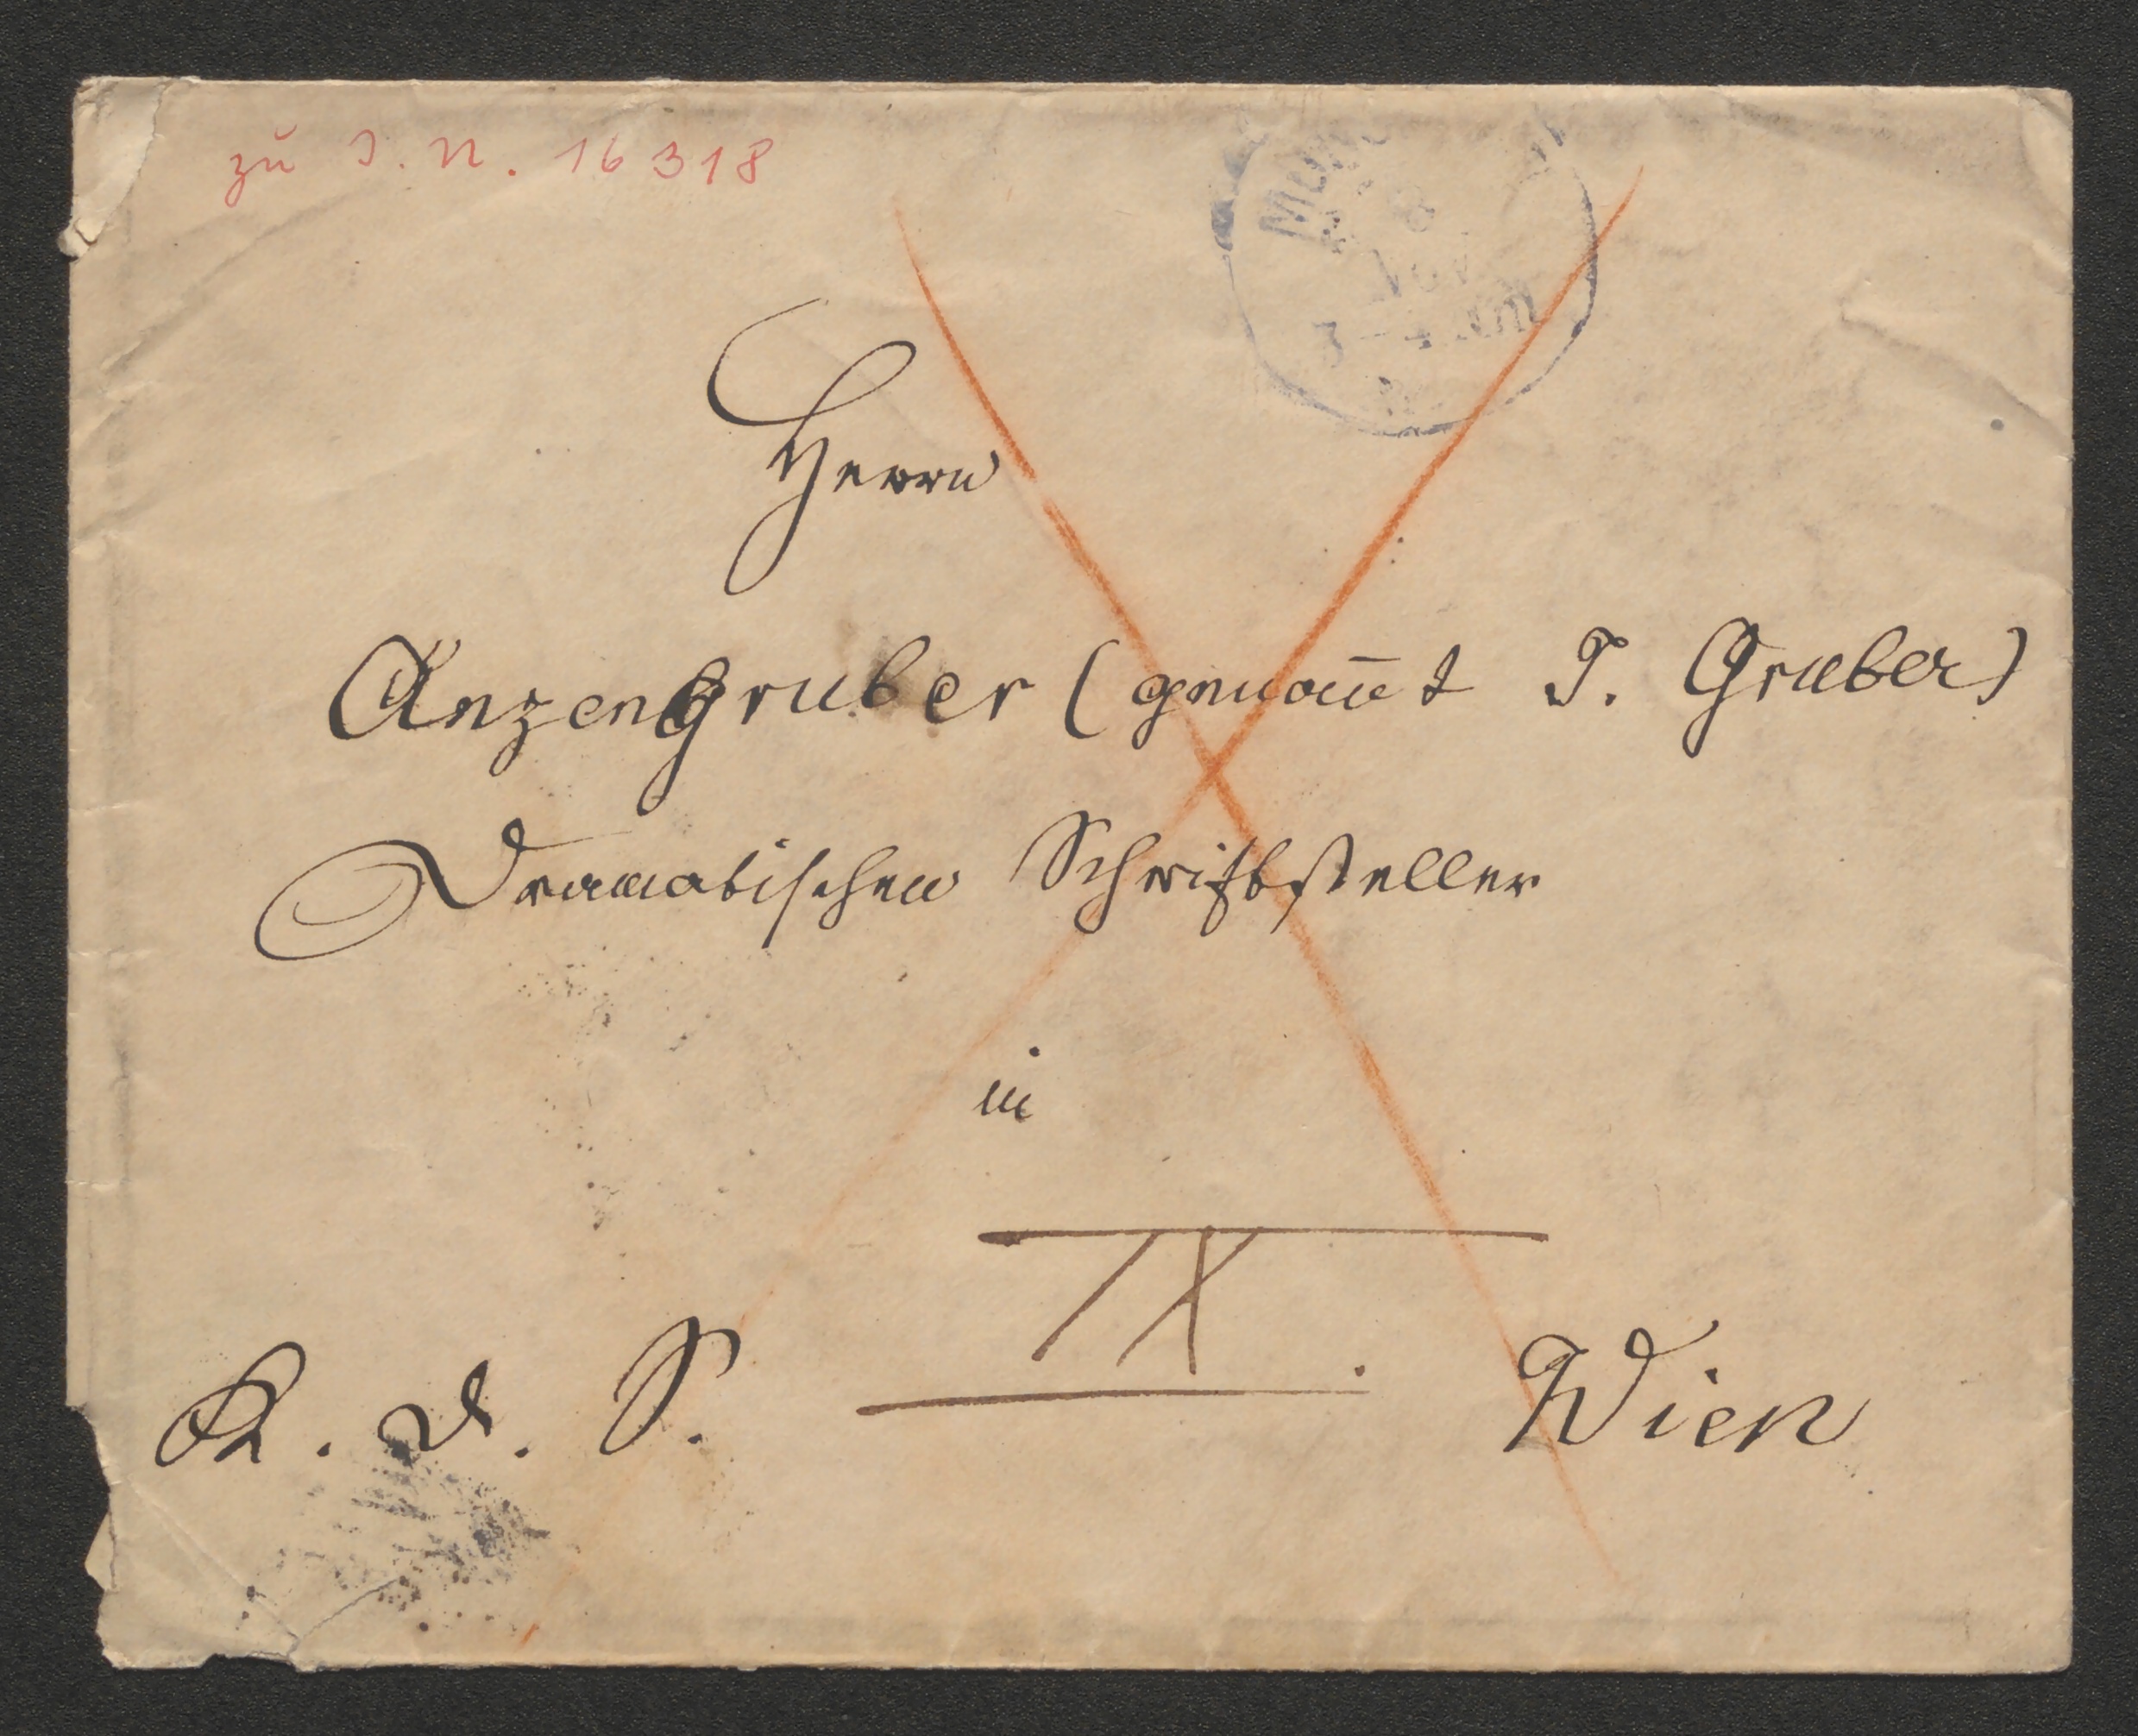 zu I. N. 16318
8
Nov
3-4 Nm
Herrn
Anzengruber (genannt J. Gruber)
Dramatischen Schriftsteller
in
IX.
K. d. S. Wien